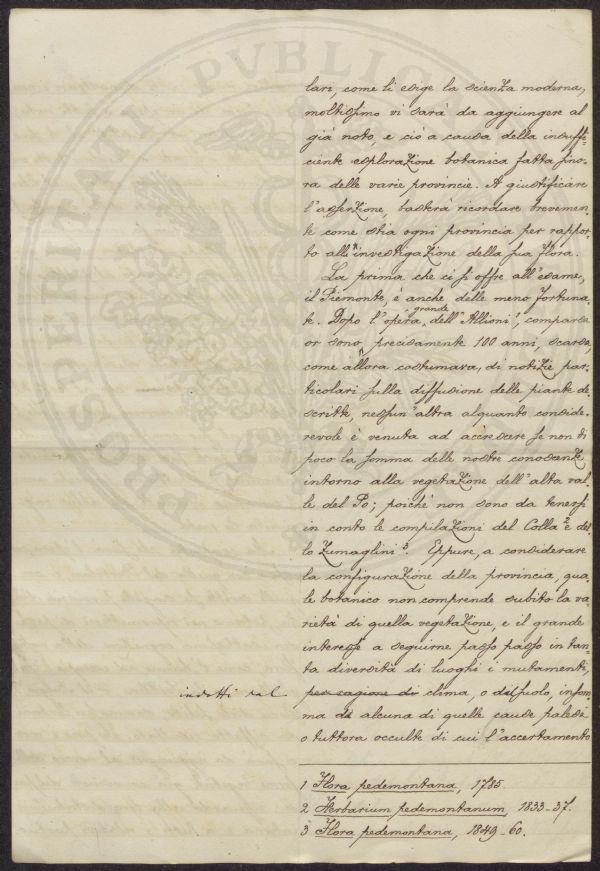 lari, come li esige la scienza moderna,
moltissimo vi sarà da aggiungere al
già noto, e ciò a causa della insuffi-
ciente esplorazione botanica fatta fino-
ra delle varie provincie. A giustificare
l'asserzione, basterà ricordare brevemen-
te come stia ogni provincia per rappor-
to all'investigazione della sua flora.
La prima che ci si offre all'esame,
il Piemonte, è anche delle meno fortuna-
te. Dopo l'opera grande dell'Allioni 1, comparsa
or sono precisamente 100 anni, scarsa,
come allora costumava, di notizie par-
ticolari sulla diffusione delle piante de-
scritte, nessun'altra alquanto conside-
revole è venuta ad accrescere se non di
poco la somma delle nostre conoscenze
intorno alla vegetazione dell'alta val-
le del Po; poichè non sono da tenersi
in conto le compilazioni del Colla 2 e del-
lo Zumaglini 3. Eppure, a considerare
la configurazione della provincia, qua-
le botanico non comprende subito la va-
rietà di quella vegetazione, e il grande
interesse a seguirne passo passo in tan-
ta diversità di luoghi i mutamenti,
indotti dal per cagione di clima, o dal suolo, insom-
ma da alcuna di quelle cause palesi
o tuttora occulte di cui l'accertamento
1 Flora pedemontana, 1785.
2 Herbarium pedemontanum, 1833-37.
3 Flora pedemontana, 1849-60.
PROSPERITATI PVBLICAE